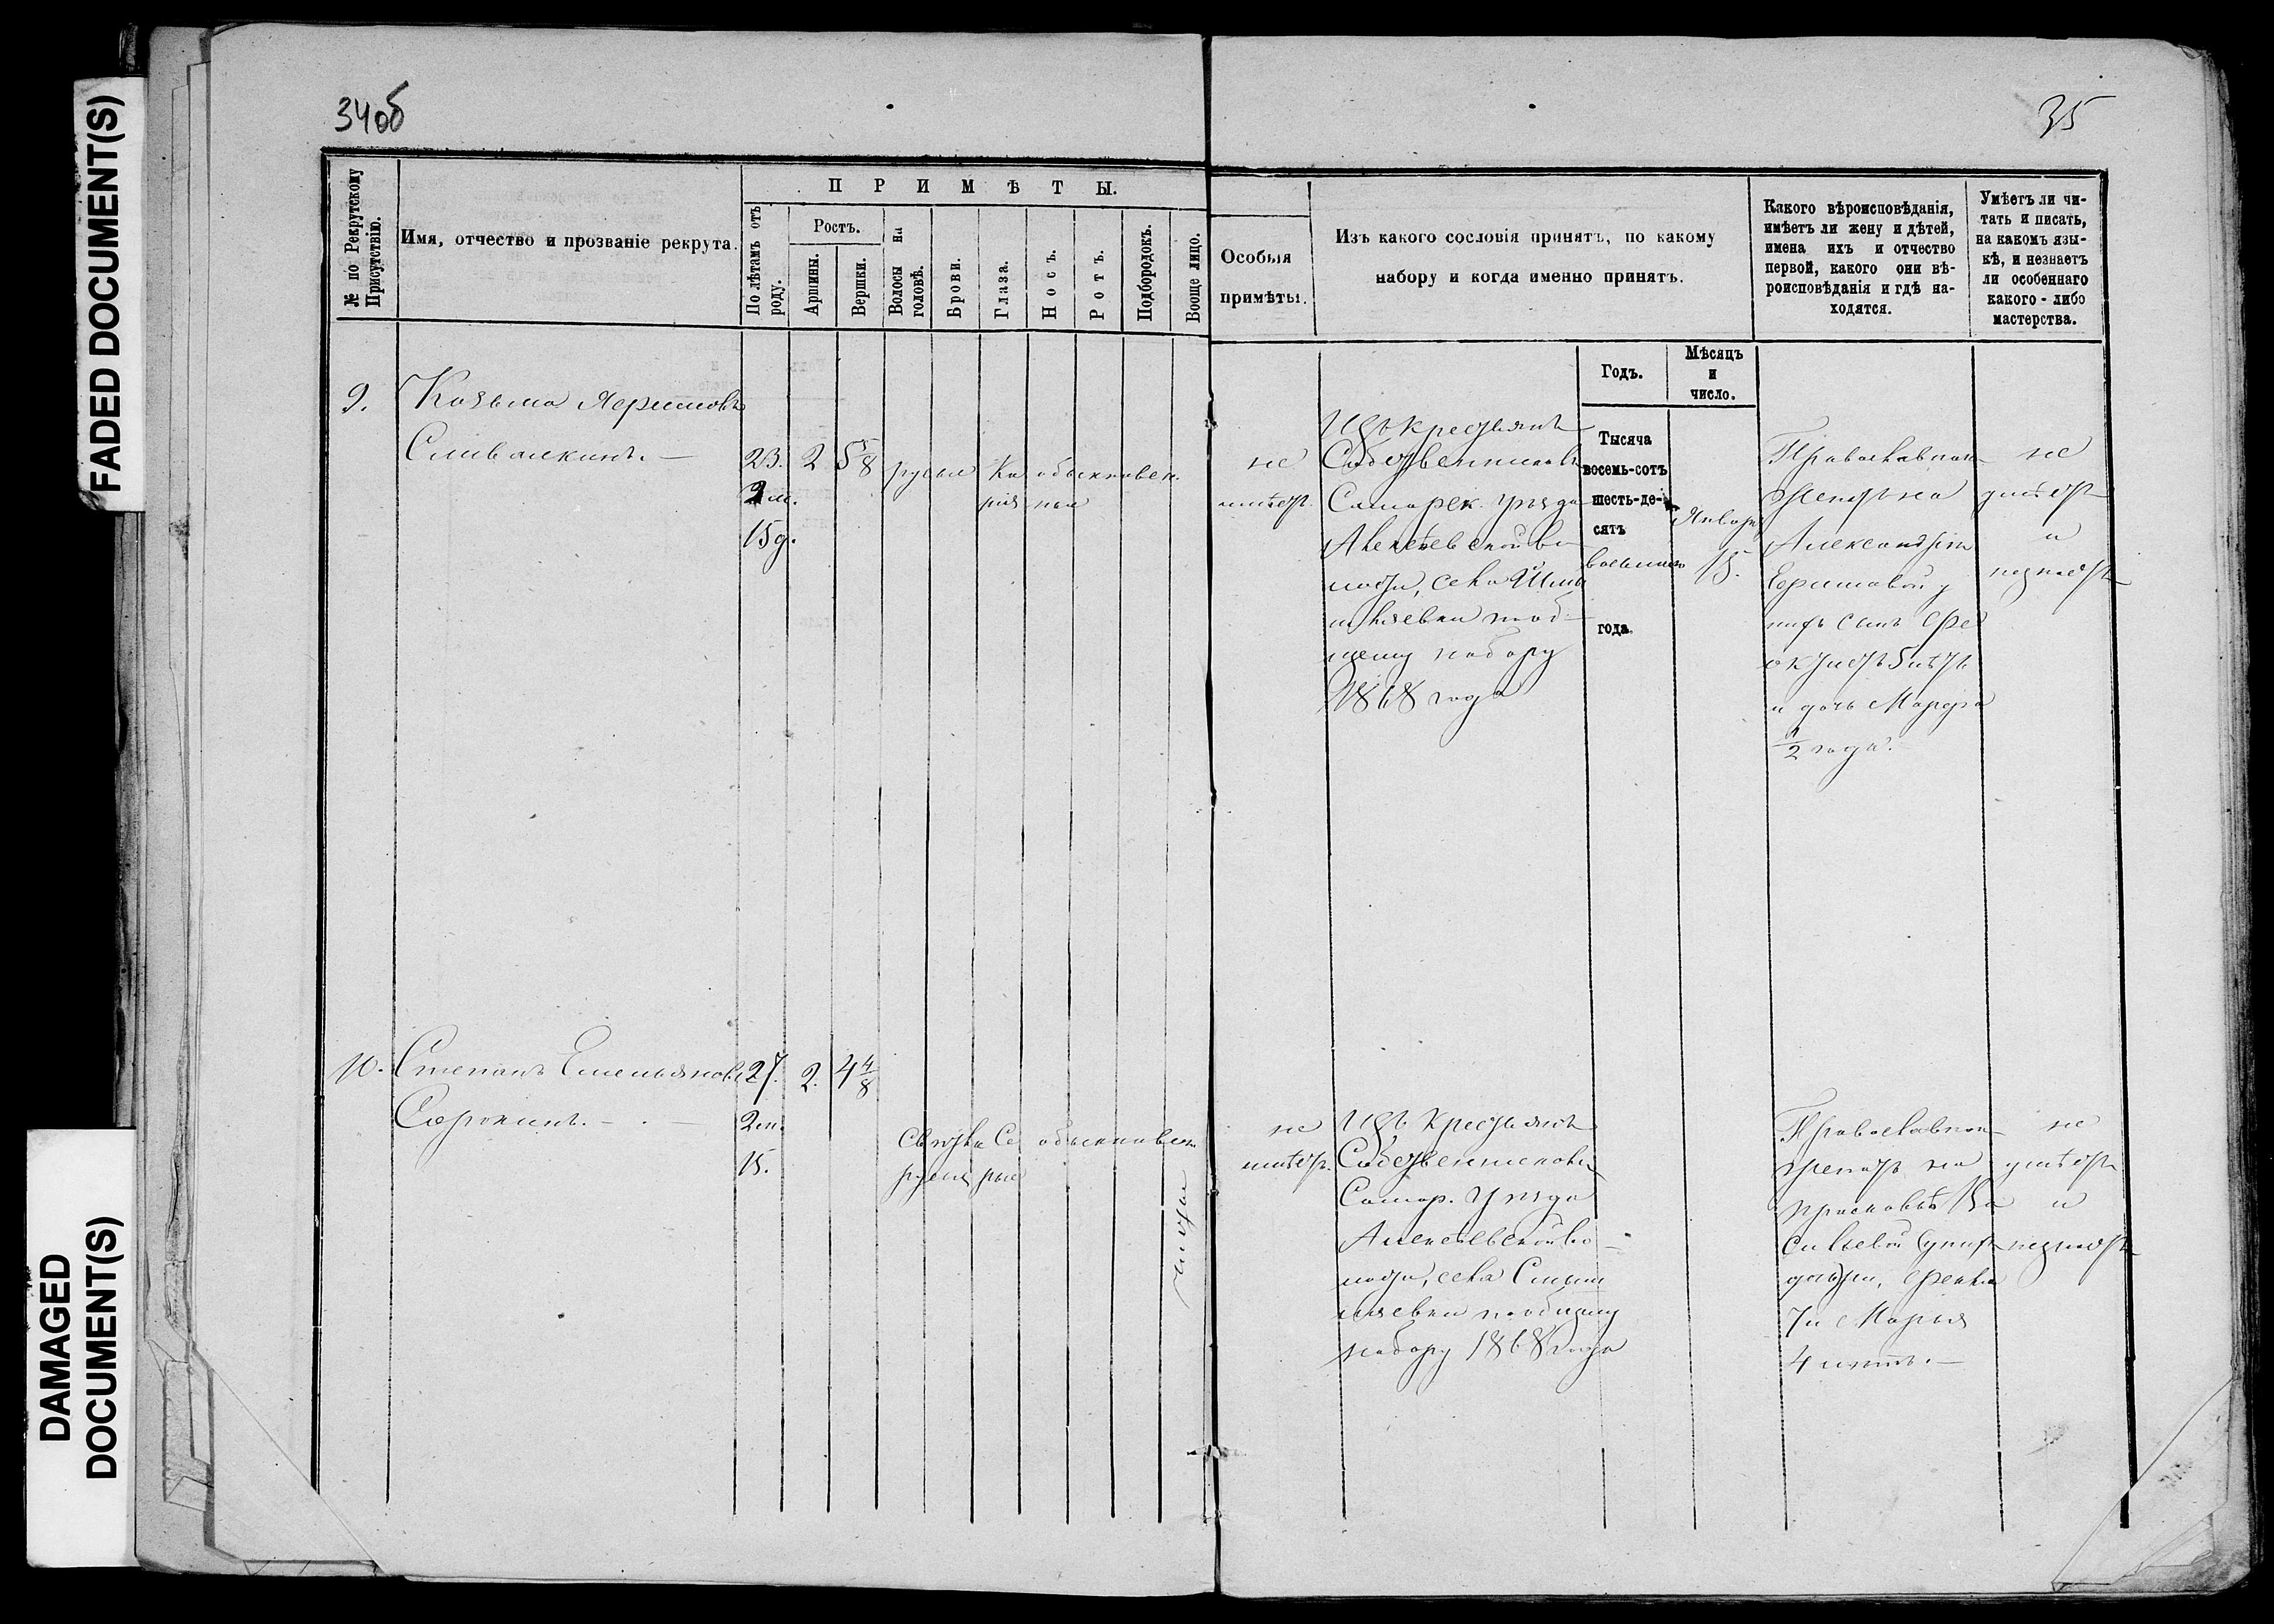 FADED DOCUMENT(S)
DAMAGED
DOCUMENT(S)
34об
35
№ по Рекрутскому
Присутствію.
Имя, отчество и прозваніе рекрута.
ПРИМѢТЫ.
По лѣтамъ отъ
роду.
Ростъ.
Аршины.
Вершки.
Волосы на
головѣ.
Брови.
Глаза.
Носъ.
Ротъ.
Подбородокъ.
Вооще лицо.
Особыя
примѣты.
Изъ какого сословія принятъ, по какому
набору и когда именно принятъ.
Какого вѣроисповѣданія,
имѣетъ ли жену и дѣтей,
имена ихъ и отчество
первой, какого они вѣ-
роисповѣданія и гдѣ на-
ходятся.
Умѣетъ ли чи-
тать и писать,
на какомъ язы-
кѣ, и незнаетъ
ли особеннаго
какого-либо
мастерства.
Годъ.
Мѣсяцъ
и
число.
9.
Козьма
23.
2 м.
15 д.
2
5/8
русые
Ка
рія
обыкновен.
ные
не
имѣетъ.
Изъ крестьянъ
Собственниковъ
Самарск. уѣзда
Алексѣевской во
лости, села
набору
1868 года
Тысяча
восемь-сотъ
шесть-де-
сятъ
восьмаго
года.
Января
15.
Православнаго
женатъ на
Александрѣ
Ефимовой у
нихъ сынъ
5 лѣтъ
и дочь Марфа
1/2 года.
не
умѣетъ
и
незнаетъ
10.
Степанъ Емельяновъ
Сорокинъ. -
27.
2 м.
15.
2.
4 4/8
свѣтло
русые
Се
рые
обыкновен
чистое
не
имѣетъ.
Изъ крестьянъ
Собственниковъ
Самар. уѣзда
Алексѣевской во
лости, села Смыш
ляевки по общему
набору 1868 года
Православнаго
женатъ на
Прасковьѣ Ва
сильевой у нихъ
7 и Марья
4 лѣтъ. -
не
умѣетъ
и
незнаетъ